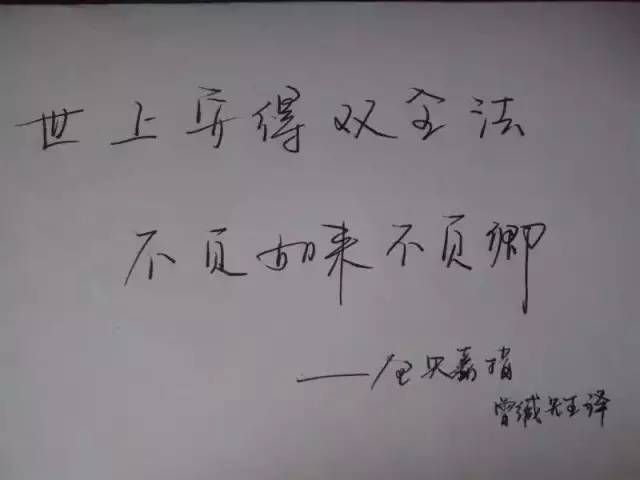 世上安得双全法
不负如来不负卿
——仓央嘉措
曾缄先生译